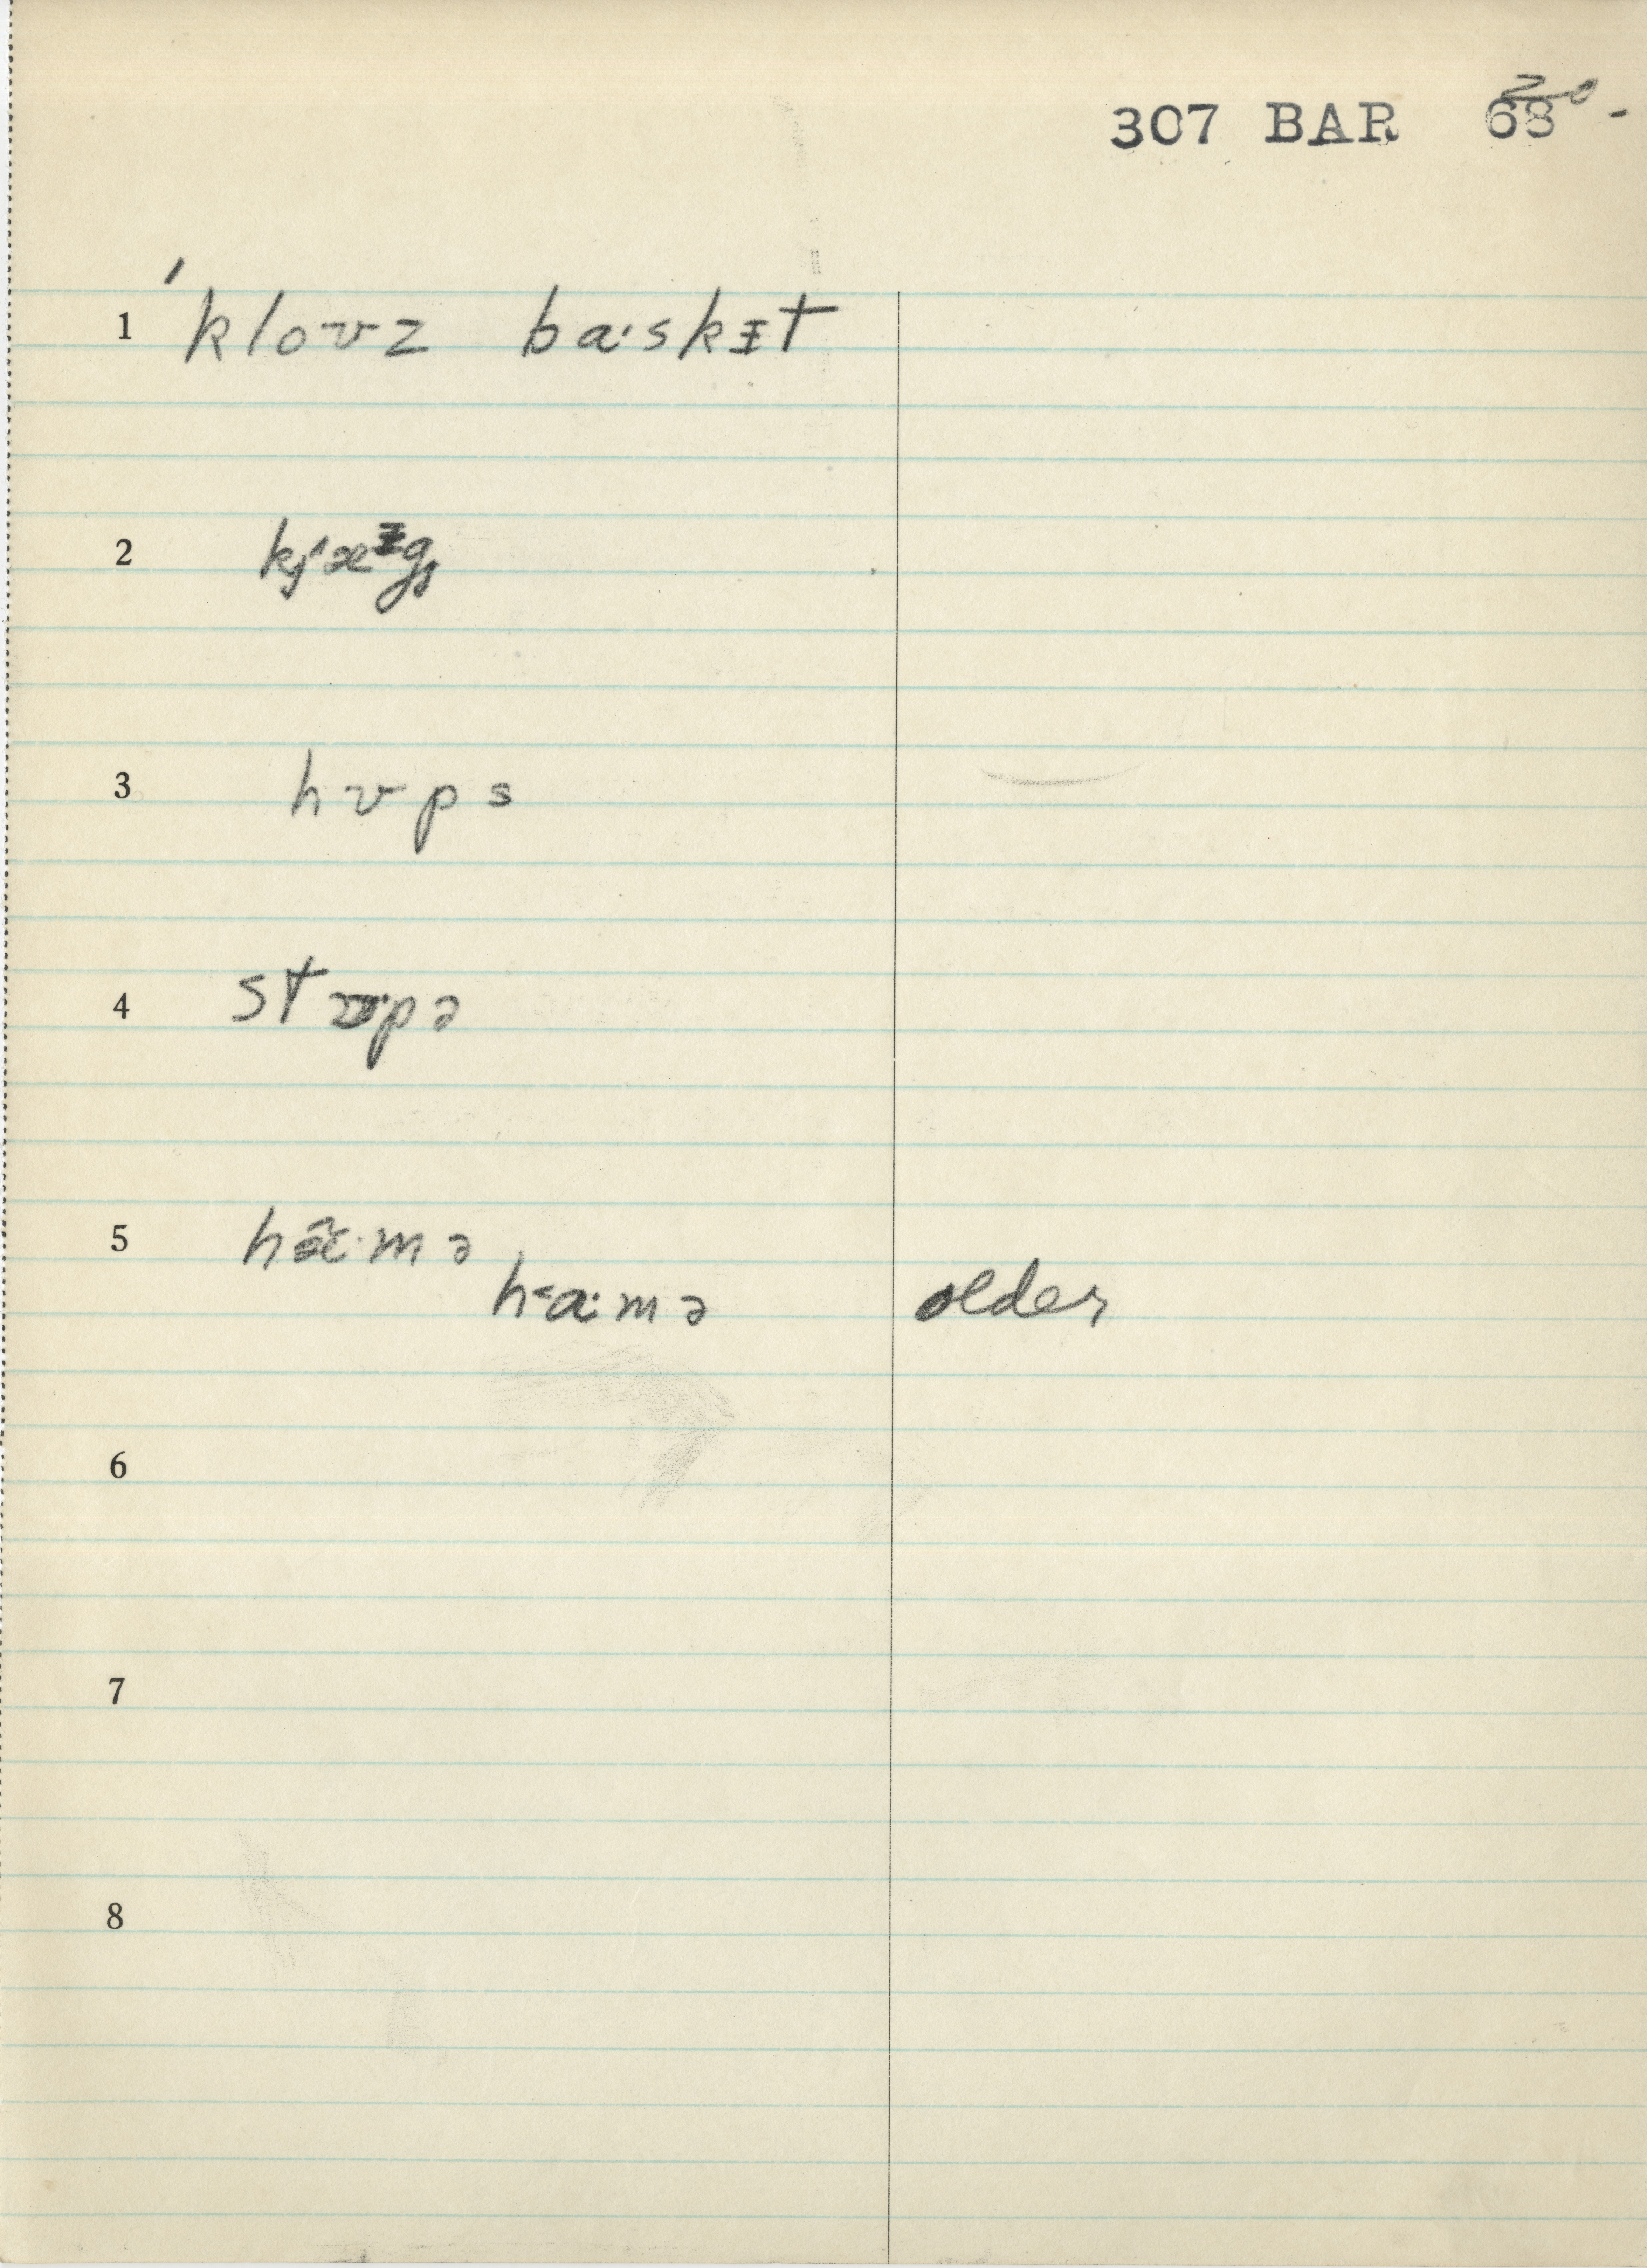 20-
307 BAR 68
1 ˈkloʊz ba·skɪt
2
3 hʊps
4
5 hæ̂·mə
h<a·mə older
6
7
8